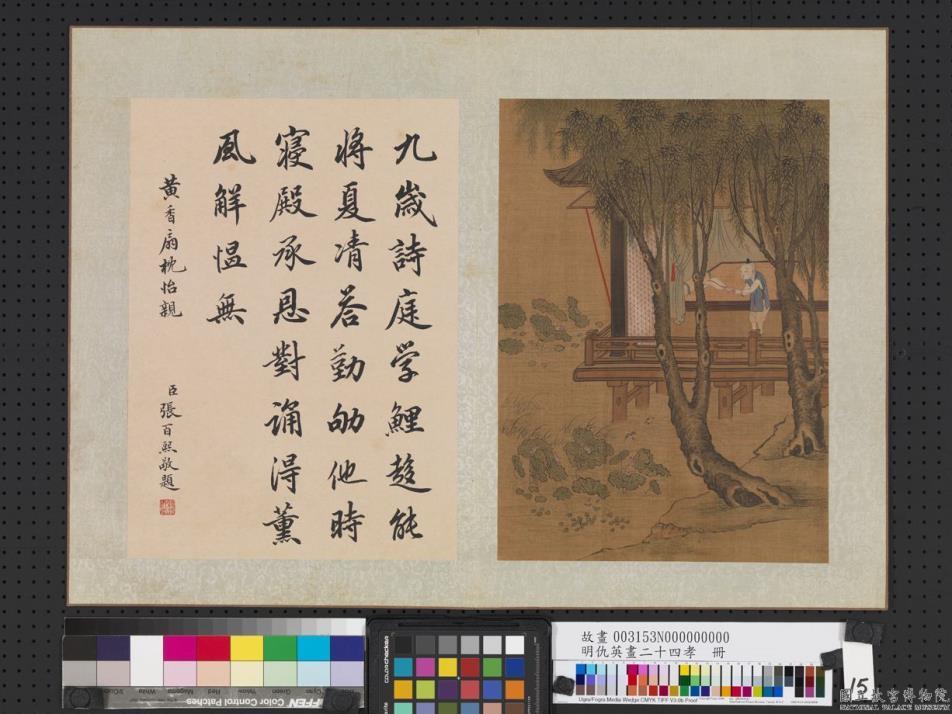 九歲詩庭学鯉趍能
將夏凊答勤劬他時
寢殿承恩對誦得薰
風解愠無
黃香扇枕怡親
臣張百熙敬題
故畫 003153N000000000
明仇英畫二十四孝 冊
15
Ugra/Fogra Media Wedge CMYK TIFF V3.0b Proof
colorchecker
TIFFEN Color Control Patches
國立故宮博物院
NATIONAL PALACE MUSEUM